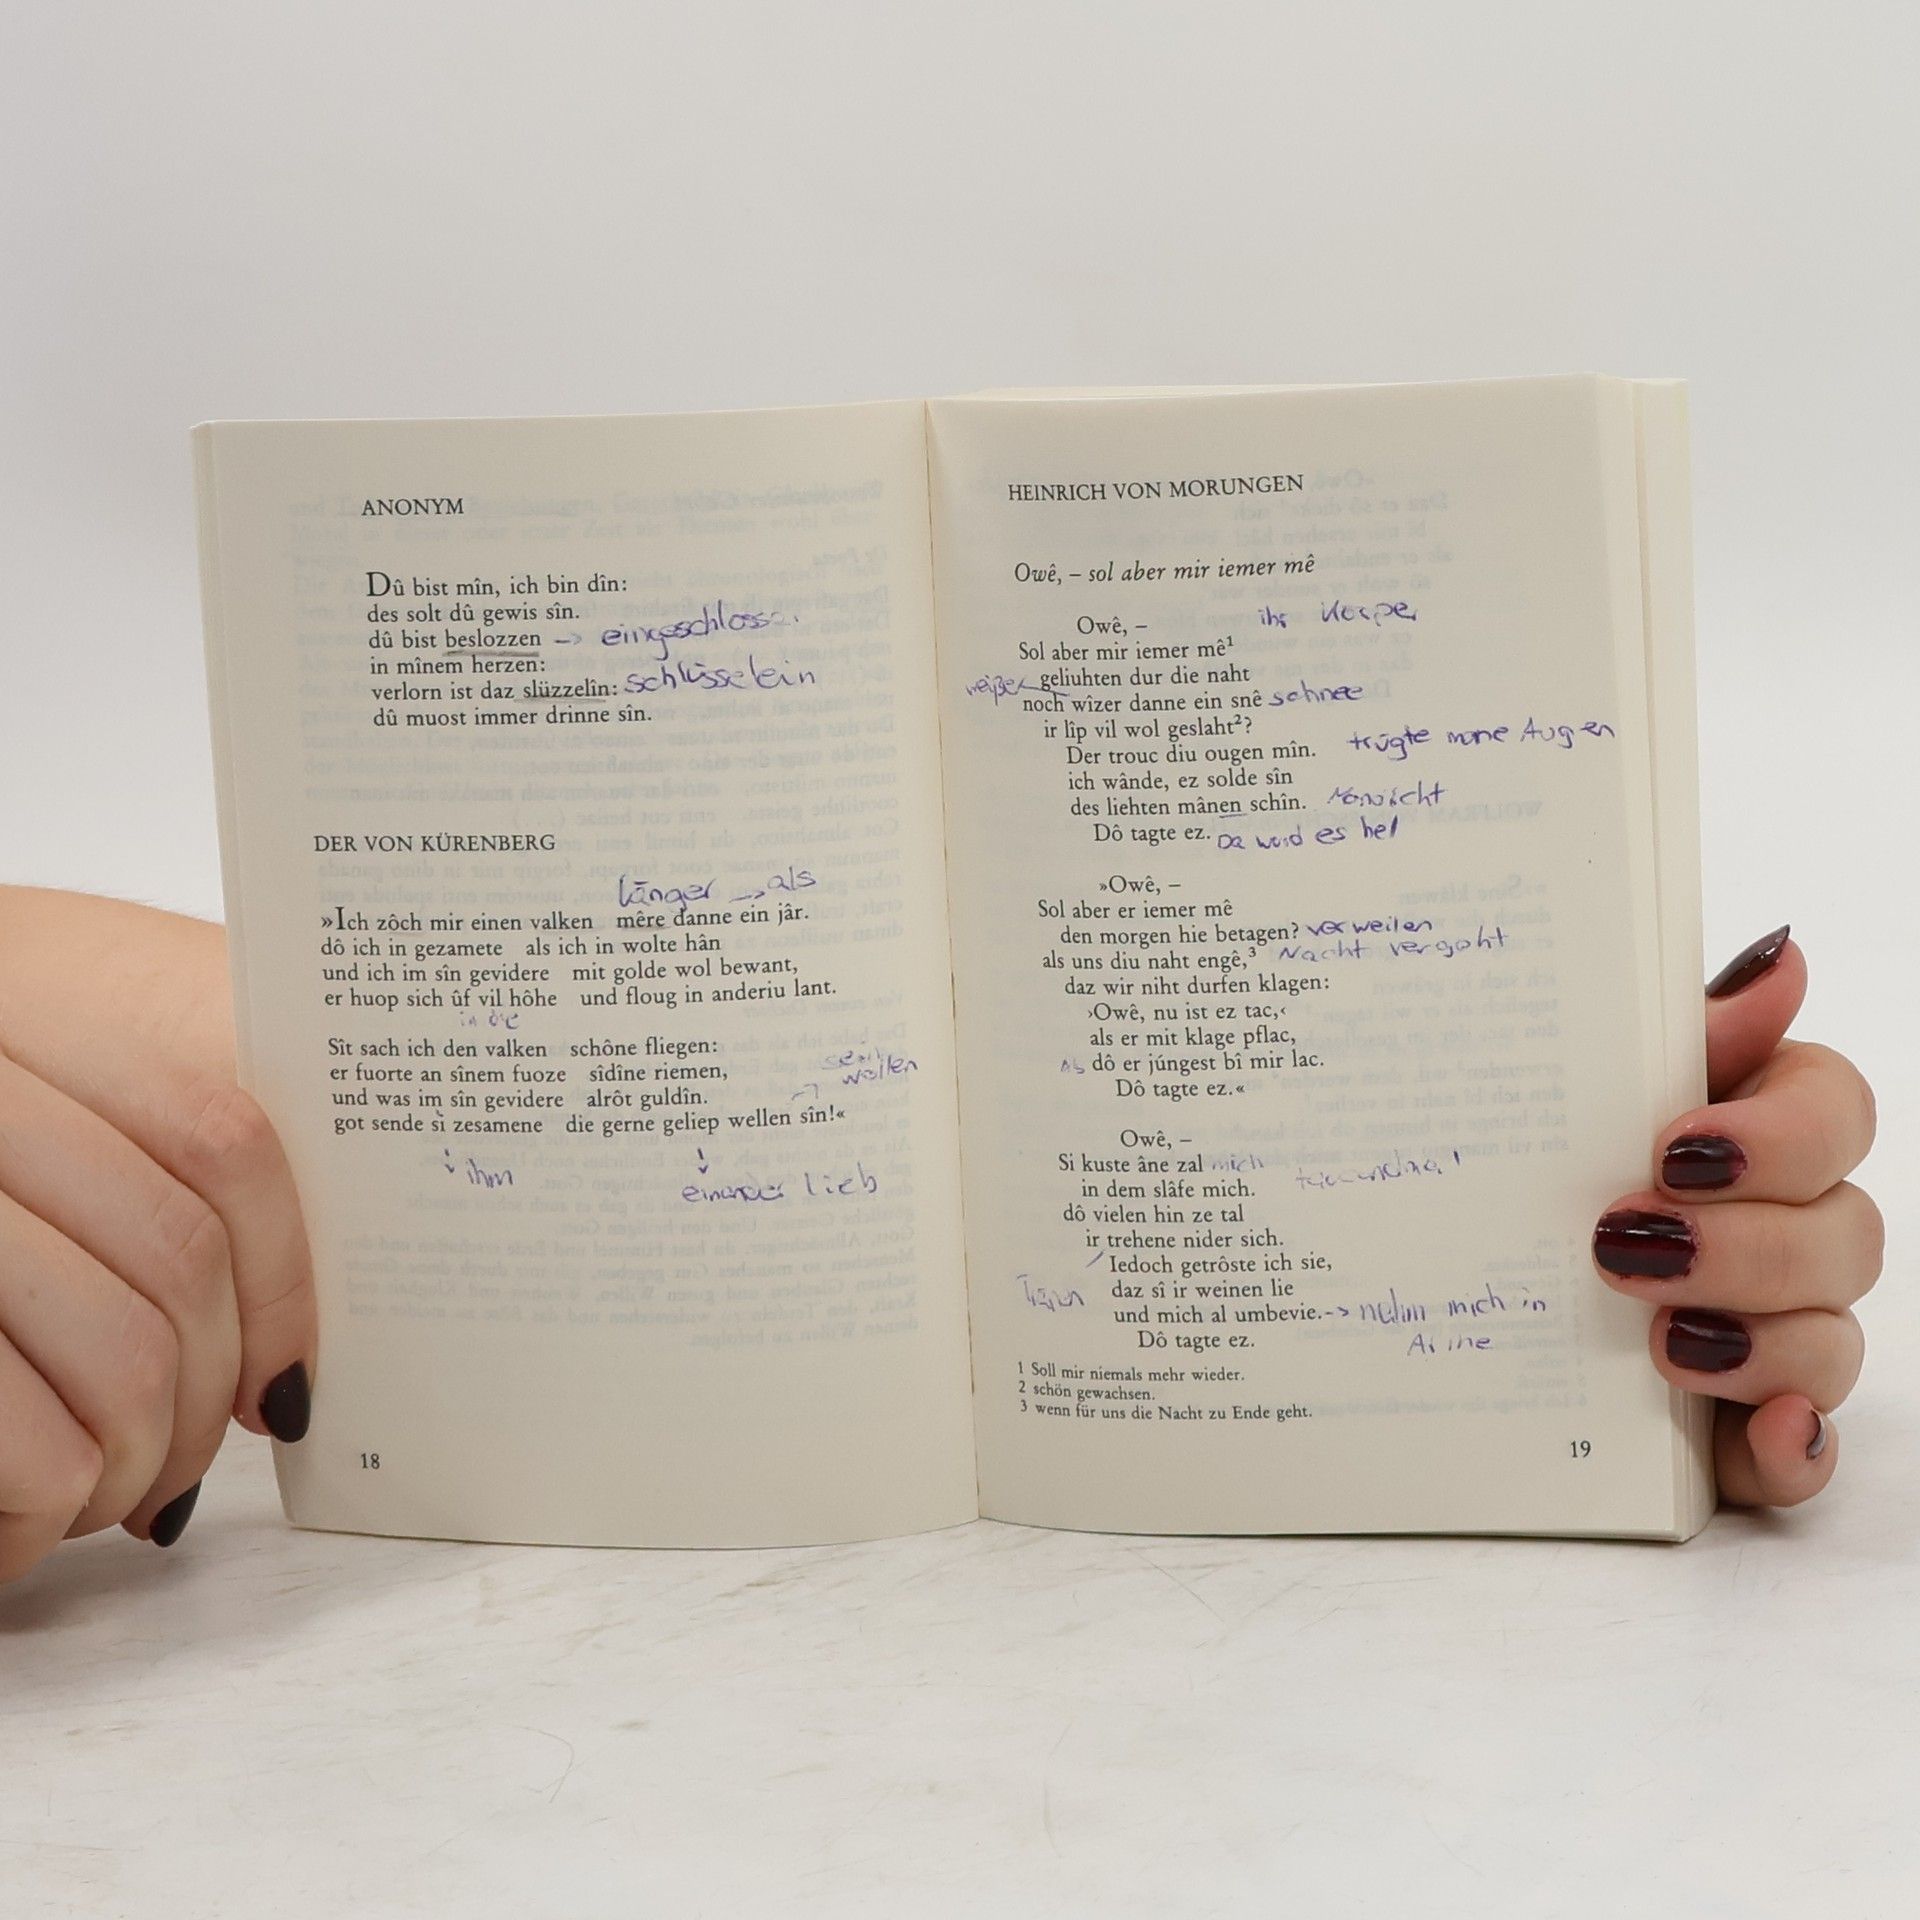 ANONYM
Dû bist mîn, ich bin dîn:
des solt dû gewis sîn.
dû bist beslozzen -> eingeschlossen
in mînem herzen:
verlorn ist daz slüzzelîn: schlüsselein
dû muost immer drinne sîn.
DER VON KÜRENBERG
länger -> als
»Ich zôch mir einen valken mêre danne ein jâr.
dô ich in gezamete als ich in wolte hân
und ich im sîn gevidere mit golde wol bewant,
er huop sich ûf vil hôhe und floug in anderiu lant.
in die
Sît sach ich den valken schône fliegen:
er fuorte an sînem fuoze sîdîne riemen,
sein wollen
und was im sîn gevidere alrôt guldîn.
got sende si zesamene die gerne geliep wellen sîn!«
ihm
einander lieb
18
HEINRICH VON MORUNGEN
Owê, – sol aber mir iemer mê
Owê, –
ihr Körper
Sol aber mir iemer mê¹
geliuhten dur die naht
weißer
noch wîzer danne ein snê schnee
ir lîp vil wol geslaht²?
Der trouc diu ougen mîn. trügte meine Augen
ich wânde, ez solde sîn
des liehten mânen schîn. Mondlicht
Dô tagte ez. Da ward es hel
»Owê, –
Sol aber er iemer mê
den morgen hie betagen? verweilen
als uns diu naht engê,³ Nacht vergeht
daz wir niht durfen klagen:
›Owê, nu ist ez tac,‹
als er mit klage pflac,
Als dô er júngest bî mir lac.
Dô tagte ez.«
Owê, –
Si kuste âne zal mich
in dem slâfe mich.
dô vielen hin ze tal
ir trehene nider sich.
Iedoch getrôste ich sie,
Tränen daz sî ir weinen lie
und mich al umbevie. -> nahm mich in
Arme
Dô tagte ez.
1 Soll mir niemals mehr wieder.
2 schön gewachsen.
3 wenn für uns die Nacht zu Ende geht.
19